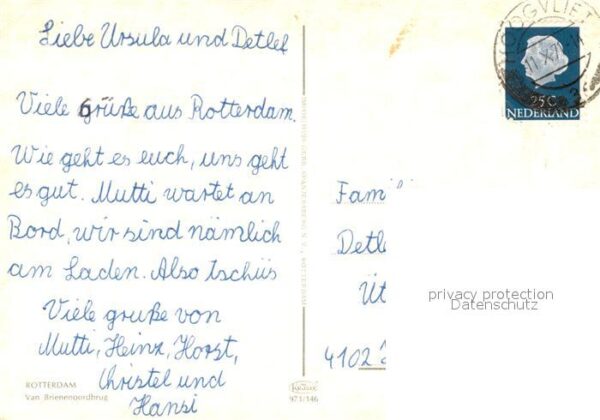 Liebe Ursula und Detlef
Viele Grüße aus Rotterdam.
Wie geht es euch, uns geht
es gut. Mutti wartet an
Bord, wir sind nämlich
am Laden. Also tschüs
Viele gruße von
Mutti, Heinz, Horst,
Christel und
Hansi
ROTTERDAM
Van Brienenoordbrug
971/146
HOOGVLIET
25C
NEDERLAND
Fam
Detle
Üt
4102
privacy protection
Datenschutz